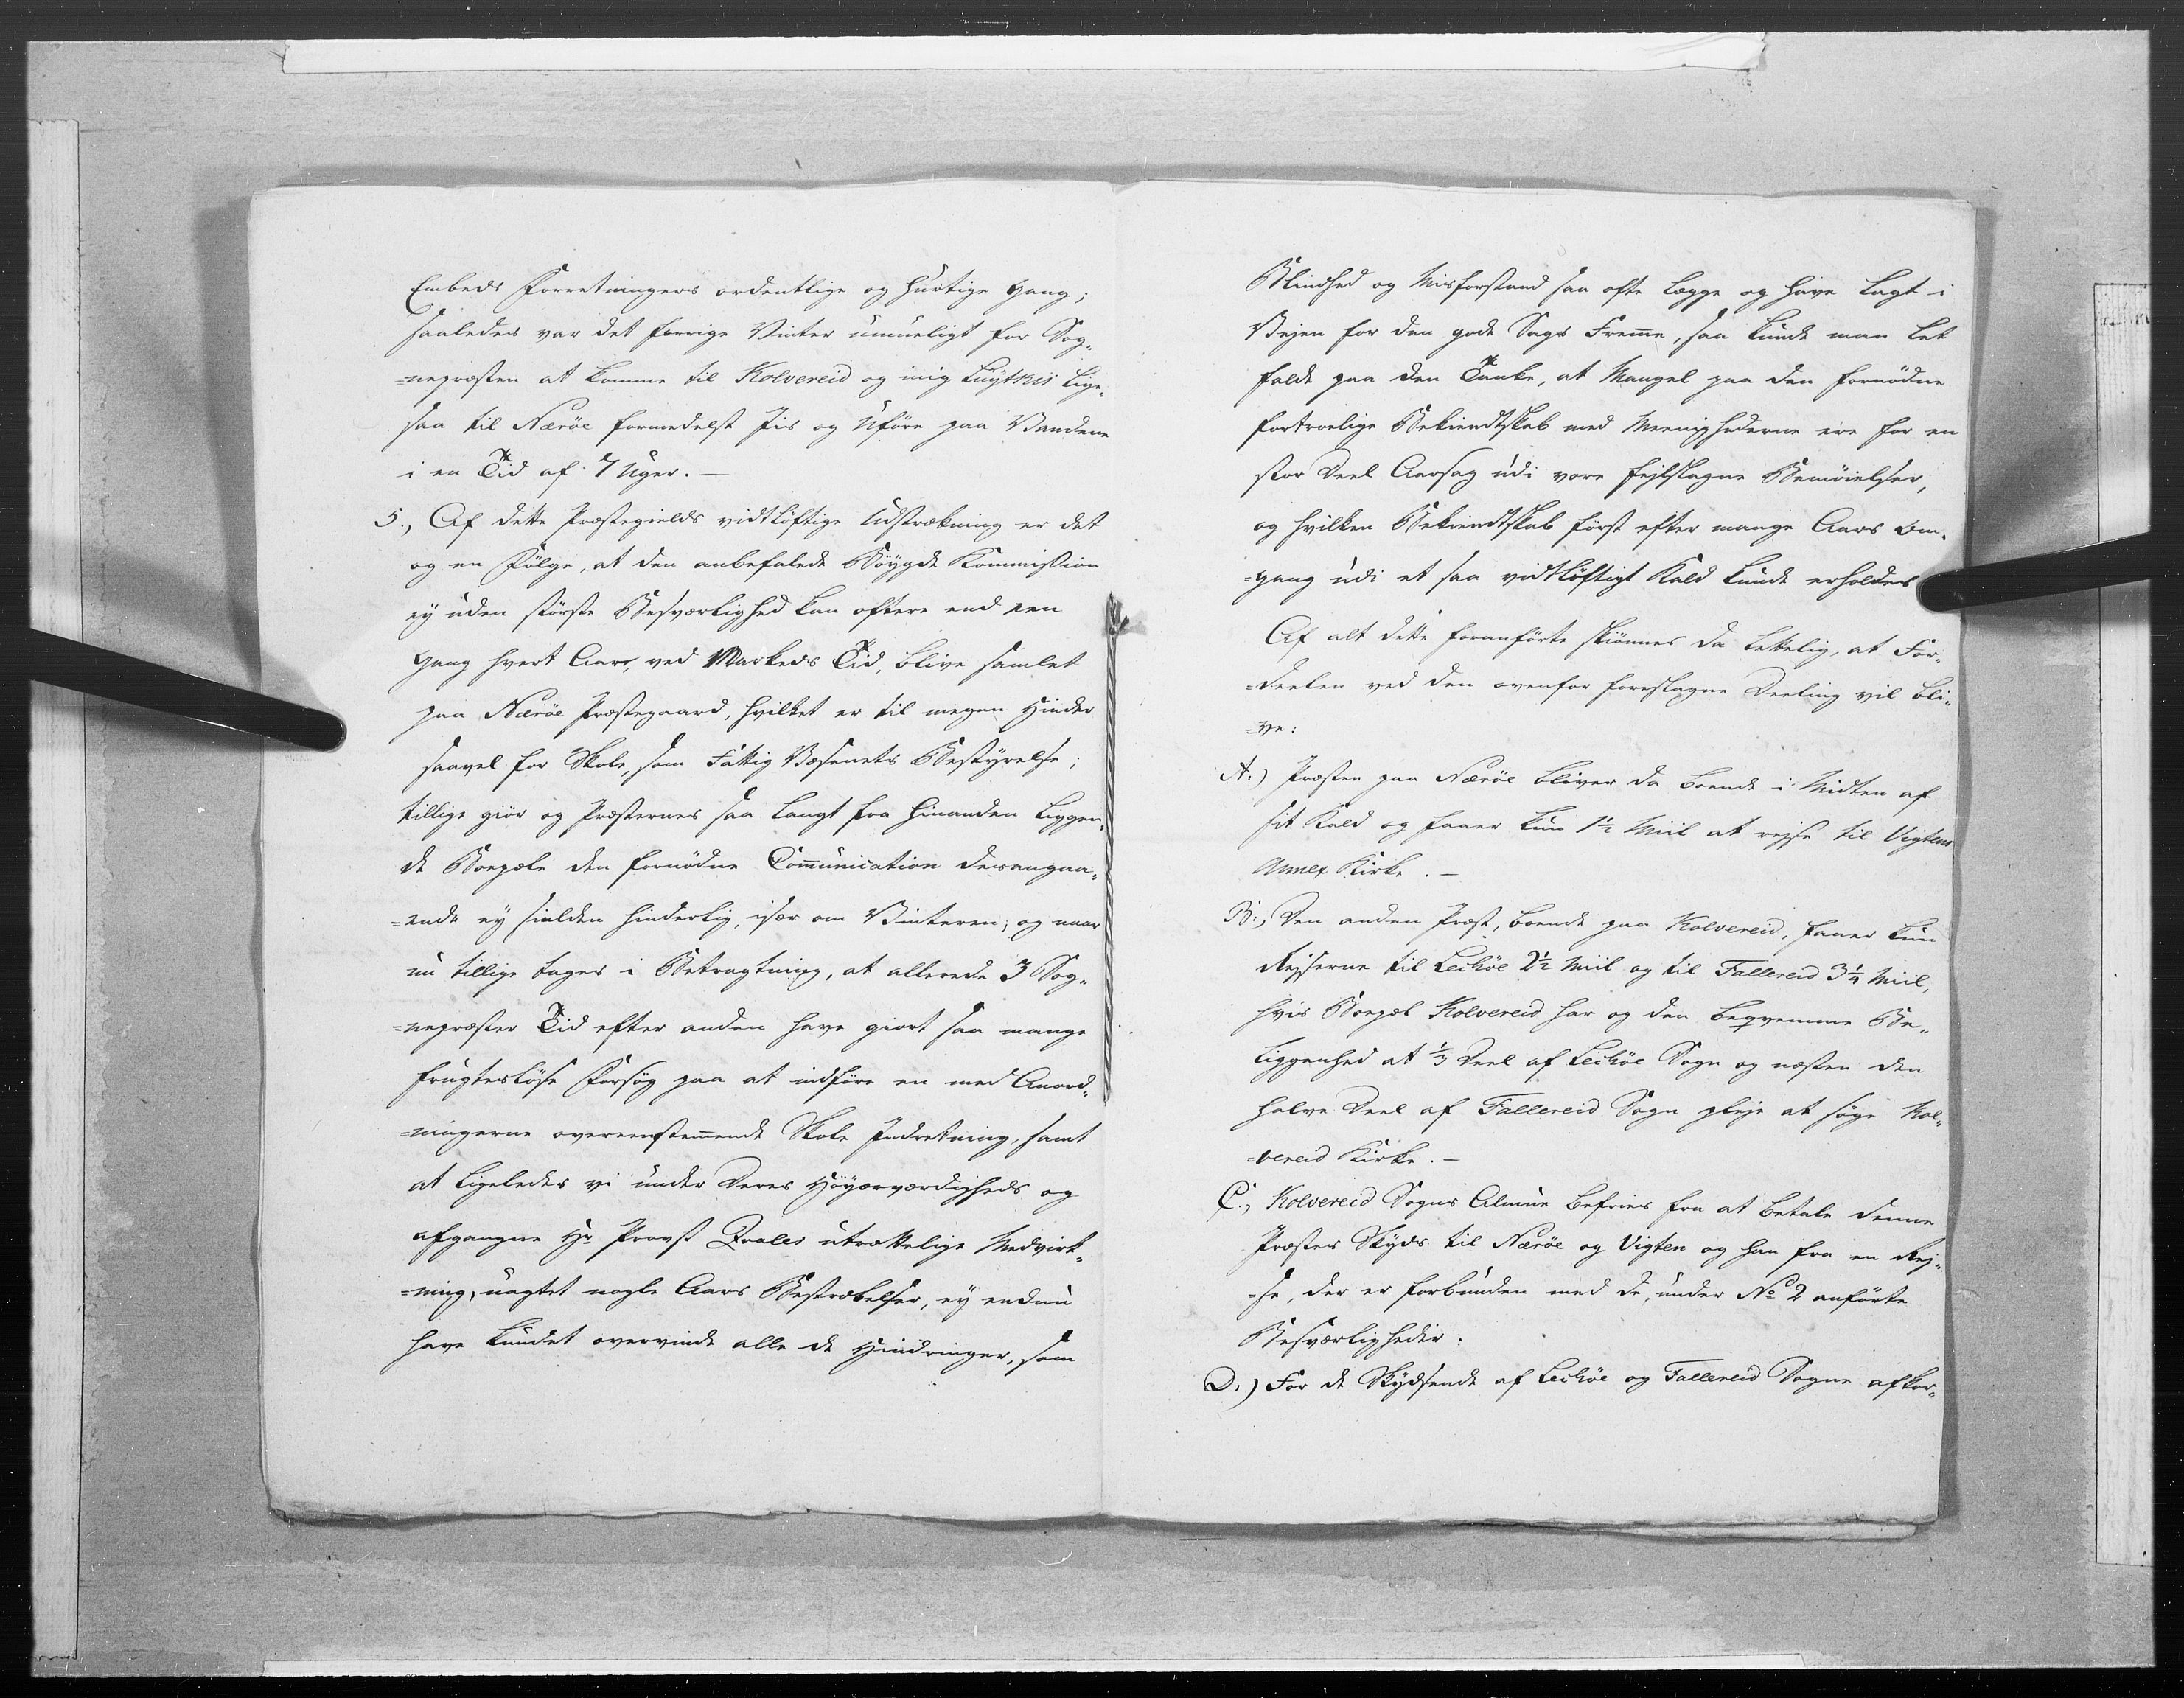 Embeds Forretningers ordentlige og hurtige Gang;
saaledes var det forrige Vinter umueligt for Sog-
=nepræsten at komme til Kolvereid og mig Luytkis lige-
saa til Nærøe formedelst Iis og Uføre paa Vandene
i en Tid af 7 Uger. —
5., Af dette Præstegields vidtløftige Udstrækning er det
og en Følge, at den anbefalede Bøygde Kommission
ey uden største Besværlighed kan oftere end een
Gang hvert Aar, ved Markeds Tid, blive samlet
paa Nærøe Præstegaard, hvilket er til megen Hinder
saavel for Skole, som Fattig Væsenets Bestyrelse;
tillige giør og Præsternes saa langt fra hinanden liggen-
de Boepæle den fornødne Communication desangaa-
=ende ey sielden hinderlig, især om Vinteren; og naar
nu tillige tages i Betragtning, at allerede 3 Sog-
=nepræster Tid efter anden have giort saa mange
frugtesløse Forsøg paa at indføre en med Anord-
=ningerne overeenstemmende Skole Indretning, samt
at ligeledes vi under Deres Høyærværdigheds og
afgangne Hr Provst Qvales utrættelige Medvirk-
=ning, uagtet nogle Aars Bestræbelser, ey endnu
have kundet overvinde alle de Hindringer, som
Blindhed og Misforstand saa ofte lægge og have lagt i
Vejen for den gode Sags Fremme, saa kunde man let
falde paa den Tanke, at Mangel paa den fornødne
fortroelige Bekiendtskab med Meenighederne ere for en
stor Deel Aarsag udi vore fejlslagne Bemøielser,
og hvilken Bekiendtskab først efter mange Aars Om-
=gang udi et saa vidtløftigt Kald kunde erholdes
Af alt dette foranførte skiønnes da lettelig, at For-
=deelen ved den ovenfor foreslagne Deeling vil bli-
=ve:
A:) Præsten paa Nærøe bliver da boende i Midten af
sit Kald og faaer kun 1½ Miil at rejse til Vigtens
Annex Kirke. —
B:, Den anden Præst, boende paa Kolvereid, faaer kun
Rejserne til Lechøe 2½ Miil og til Fallereid 3¼ Miil,
hvis Boepæl Kolvereid har og den beqvemme Be-
liggenhed at ⅓ Deel af Lechøe Sogn og næsten den
halve Deel af Fallereid Sogn pleje at søge Kol-
=vereid Kirke. —
C., Kolvereid Sogns Almue befries fra at betale denne
Præstes Skyds til Nærøe og Vigten og han fra en Rej-
=se, der er forbunden med de, under No 2 anførte
Besværligheder.
D.) For de Skydsende af Lechøe og Fallereid Sogne afkor-